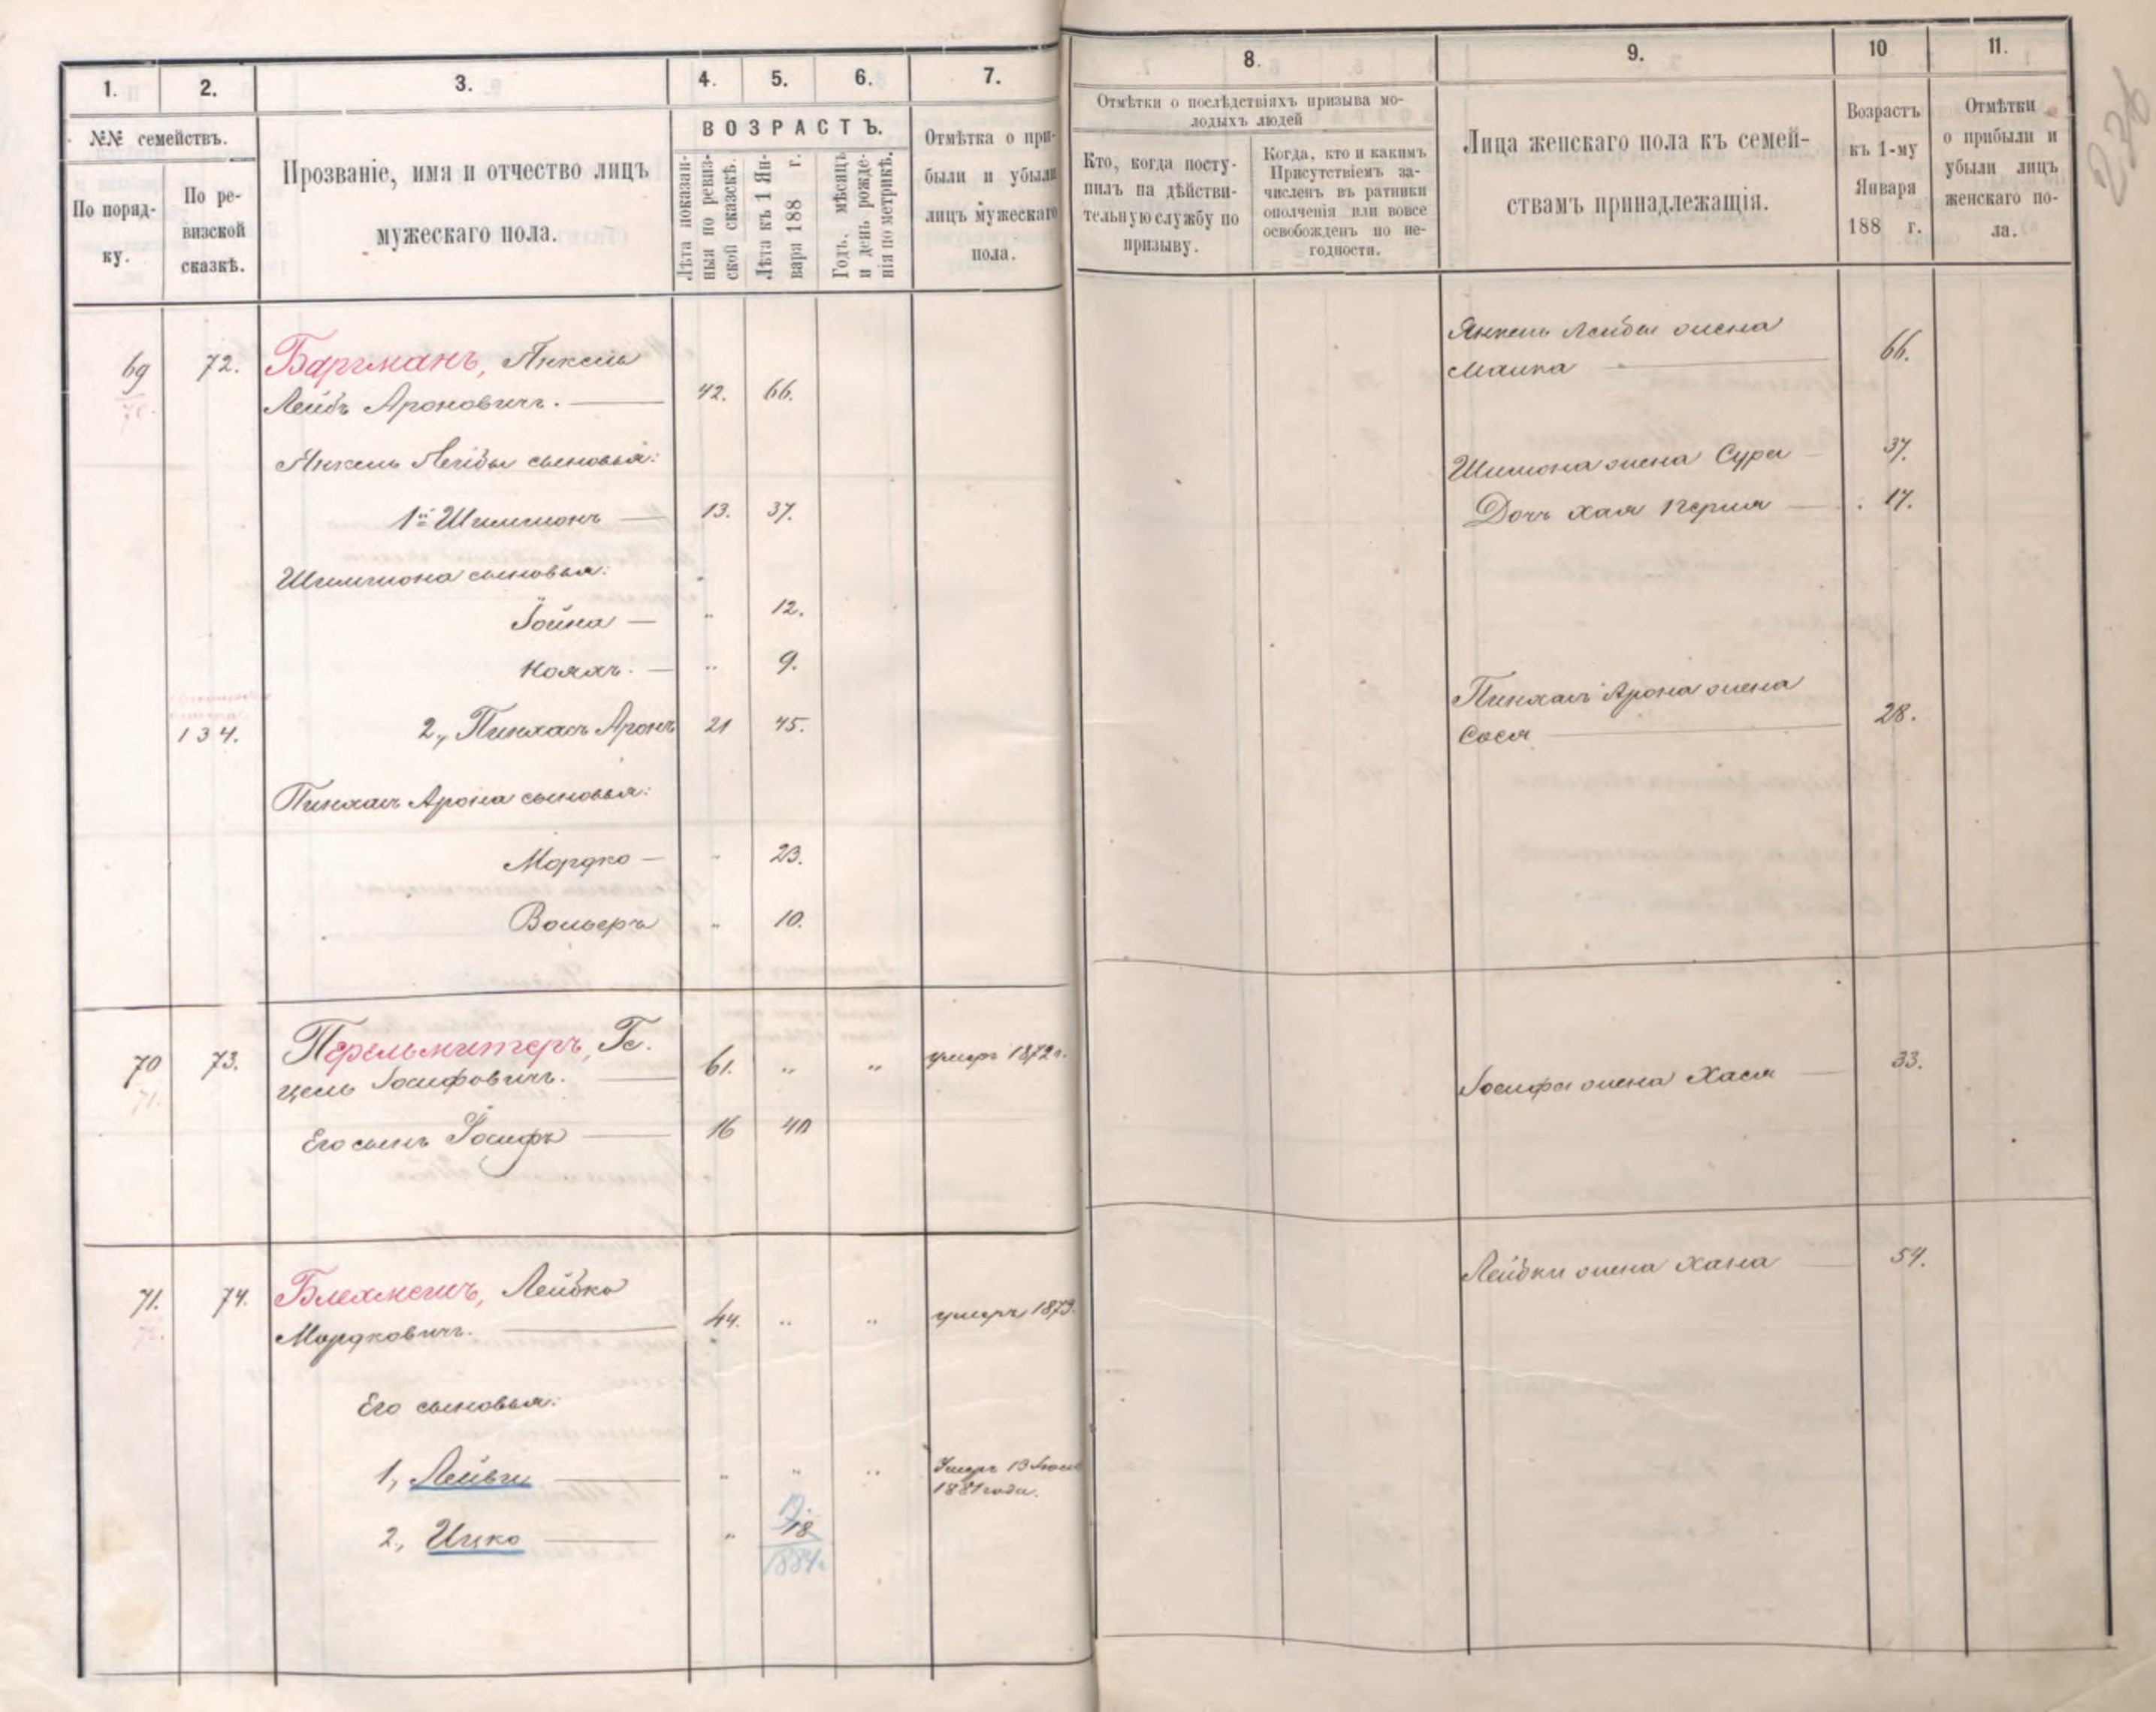 236
1.
2.
3.
4.
5.
6.
7.
№№ семействъ.
По поряд-
ку.
По ре-
визской
сказкѣ.
Прозваніе, имя и отчество лицъ
мужескаго пола.
ВОЗРАСТЪ.
Лѣта показан-
ныя по ревиз-
ской сказкѣ.
Лѣта къ 1 Ян-
варя 188 г.
Годъ, мѣсяцъ
и день рожде-
нія по метрикѣ.
Отмѣтка о при-
были и убыли
лицъ мужескаго
пола.
69
70.
72.
Баргманъ, Янкель
Лейбъ Ароновичъ.
42.
66.
Янкель Лейбы сыновья:
1й Шимшонъ
13.
37.
Шимшона сыновья:
Іойна
"
12.
"
9.
134.
2., Пинхасъ Аронъ
21
45.
Пинхасъ Арона сыновья:
Мордко
"
23.
Вольфъ
"
10.
70
71.
73.
Перельмитеръ, Ге-
цель Іосифовичъ.
61.
"
"
умеръ 1872 г.
Его сынъ Іосифъ
16
40
71.
72.
74.
Блехманъ, Лейбко
Мордковичъ.
44.
"
"
умеръ 1879.
Его сыновья:
1,
"
"
"
Умеръ 13
1881 года.
2., Ицко
"
19.
18
1884
8.
9.
10
11.
Отмѣтки о послѣдствіяхъ призыва мо-
лодыхъ людей
Кто, когда посту-
пилъ на дѣйстви-
тельную службу по
призыву.
Когда, кто и какимъ
Присутствіемъ за-
численъ въ ратники
ополченія или вовсе
освобожденъ по не-
годности.
Лица женскаго пола къ семей-
ствамъ принадлежащія.
Возрастъ
къ 1-му
Января
188 г.
Отмѣтки
о прибыли и
убыли лицъ
женскаго по-
ла.
Янкель Лейбы жена
Малка
66.
Шимшона жена Сура
37.
Дочь Хая Перля
17.
Пинхасъ Арона жена
Сося
28.
Іосифа жена Хася
33.
Лейбки жена Хана
54.